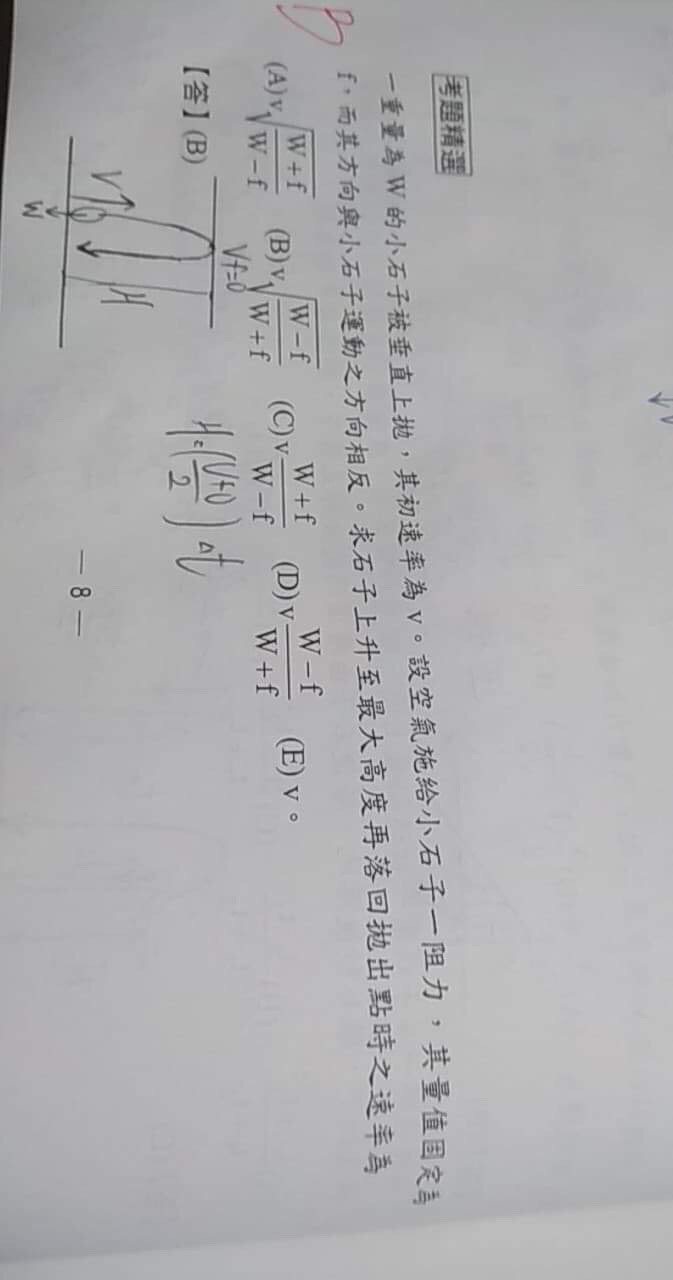 B
考題精選
一重量為 W 的小石子被垂直上拋，其初速率為 v。設空氣施給小石子一阻力，其量值固定為
f，而其方向與小石子運動之方向相反。求石子上升至最大高度再落回拋出點時之速率為
(A) v√((W+f)/(W−f)) (B) v√((W−f)/(W+f)) (C) v (W+f)/(W−f) (D) v (W−f)/(W+f) (E) v。
【答】(B)
Vf=0
V
H
W
H=((V+0)/2)Δt
— 8 —